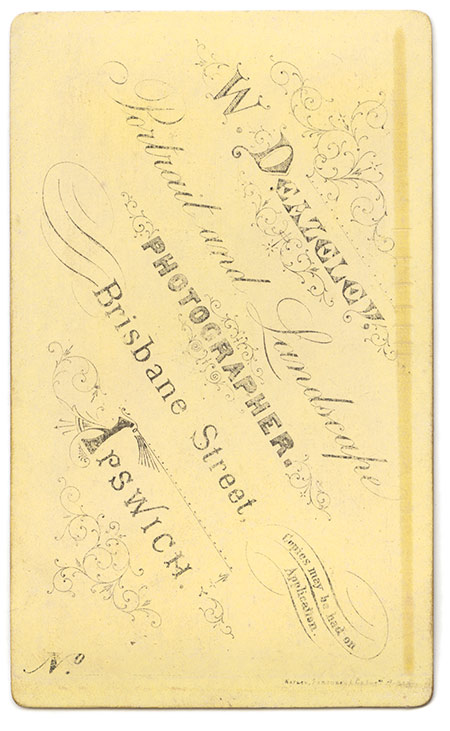 W. DEMELEY.
Portrait and Landscape
PHOTOGRAPHER.
Brisbane Street,
IPSWICH.
Copies may be had on
Application.
No.